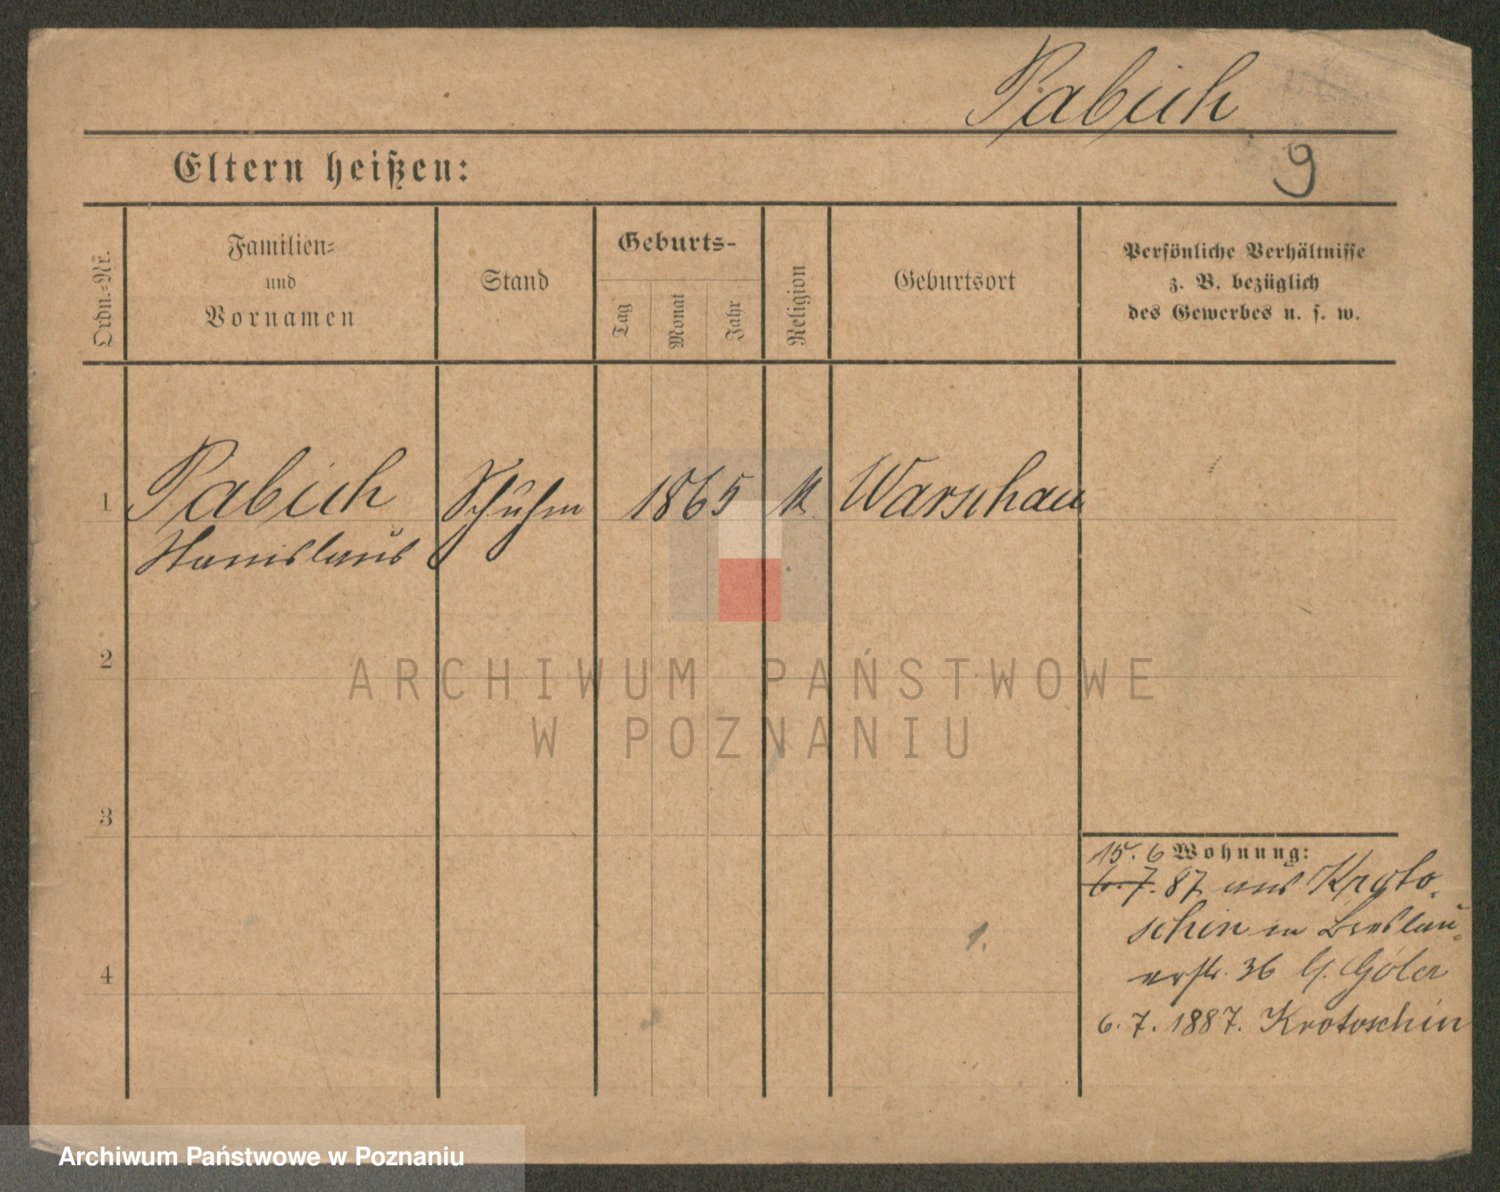 Pabich
Eltern heißen:
9
Ordn.-Nr.
Familien-
und
Vornamen
Stand
Geburts-
Tag
Monat
Jahr
Religion
Geburtsort
Persönliche Verhältnisse
z. B. bezüglich
des Gewerbes u. s. w.
1 Pabich Schuhm 1865 k. Warschau
Stanislaus
2
3
4
1.
15. 6 Wohnung:
6. 7. 87 aus Kroto-
schin in Breslau-
erstr. 36
6. 7. 1887. Krotoschin
ARCHIWUM PAŃSTWOWE
W POZNANIU
Archiwum Państwowe w Poznaniu